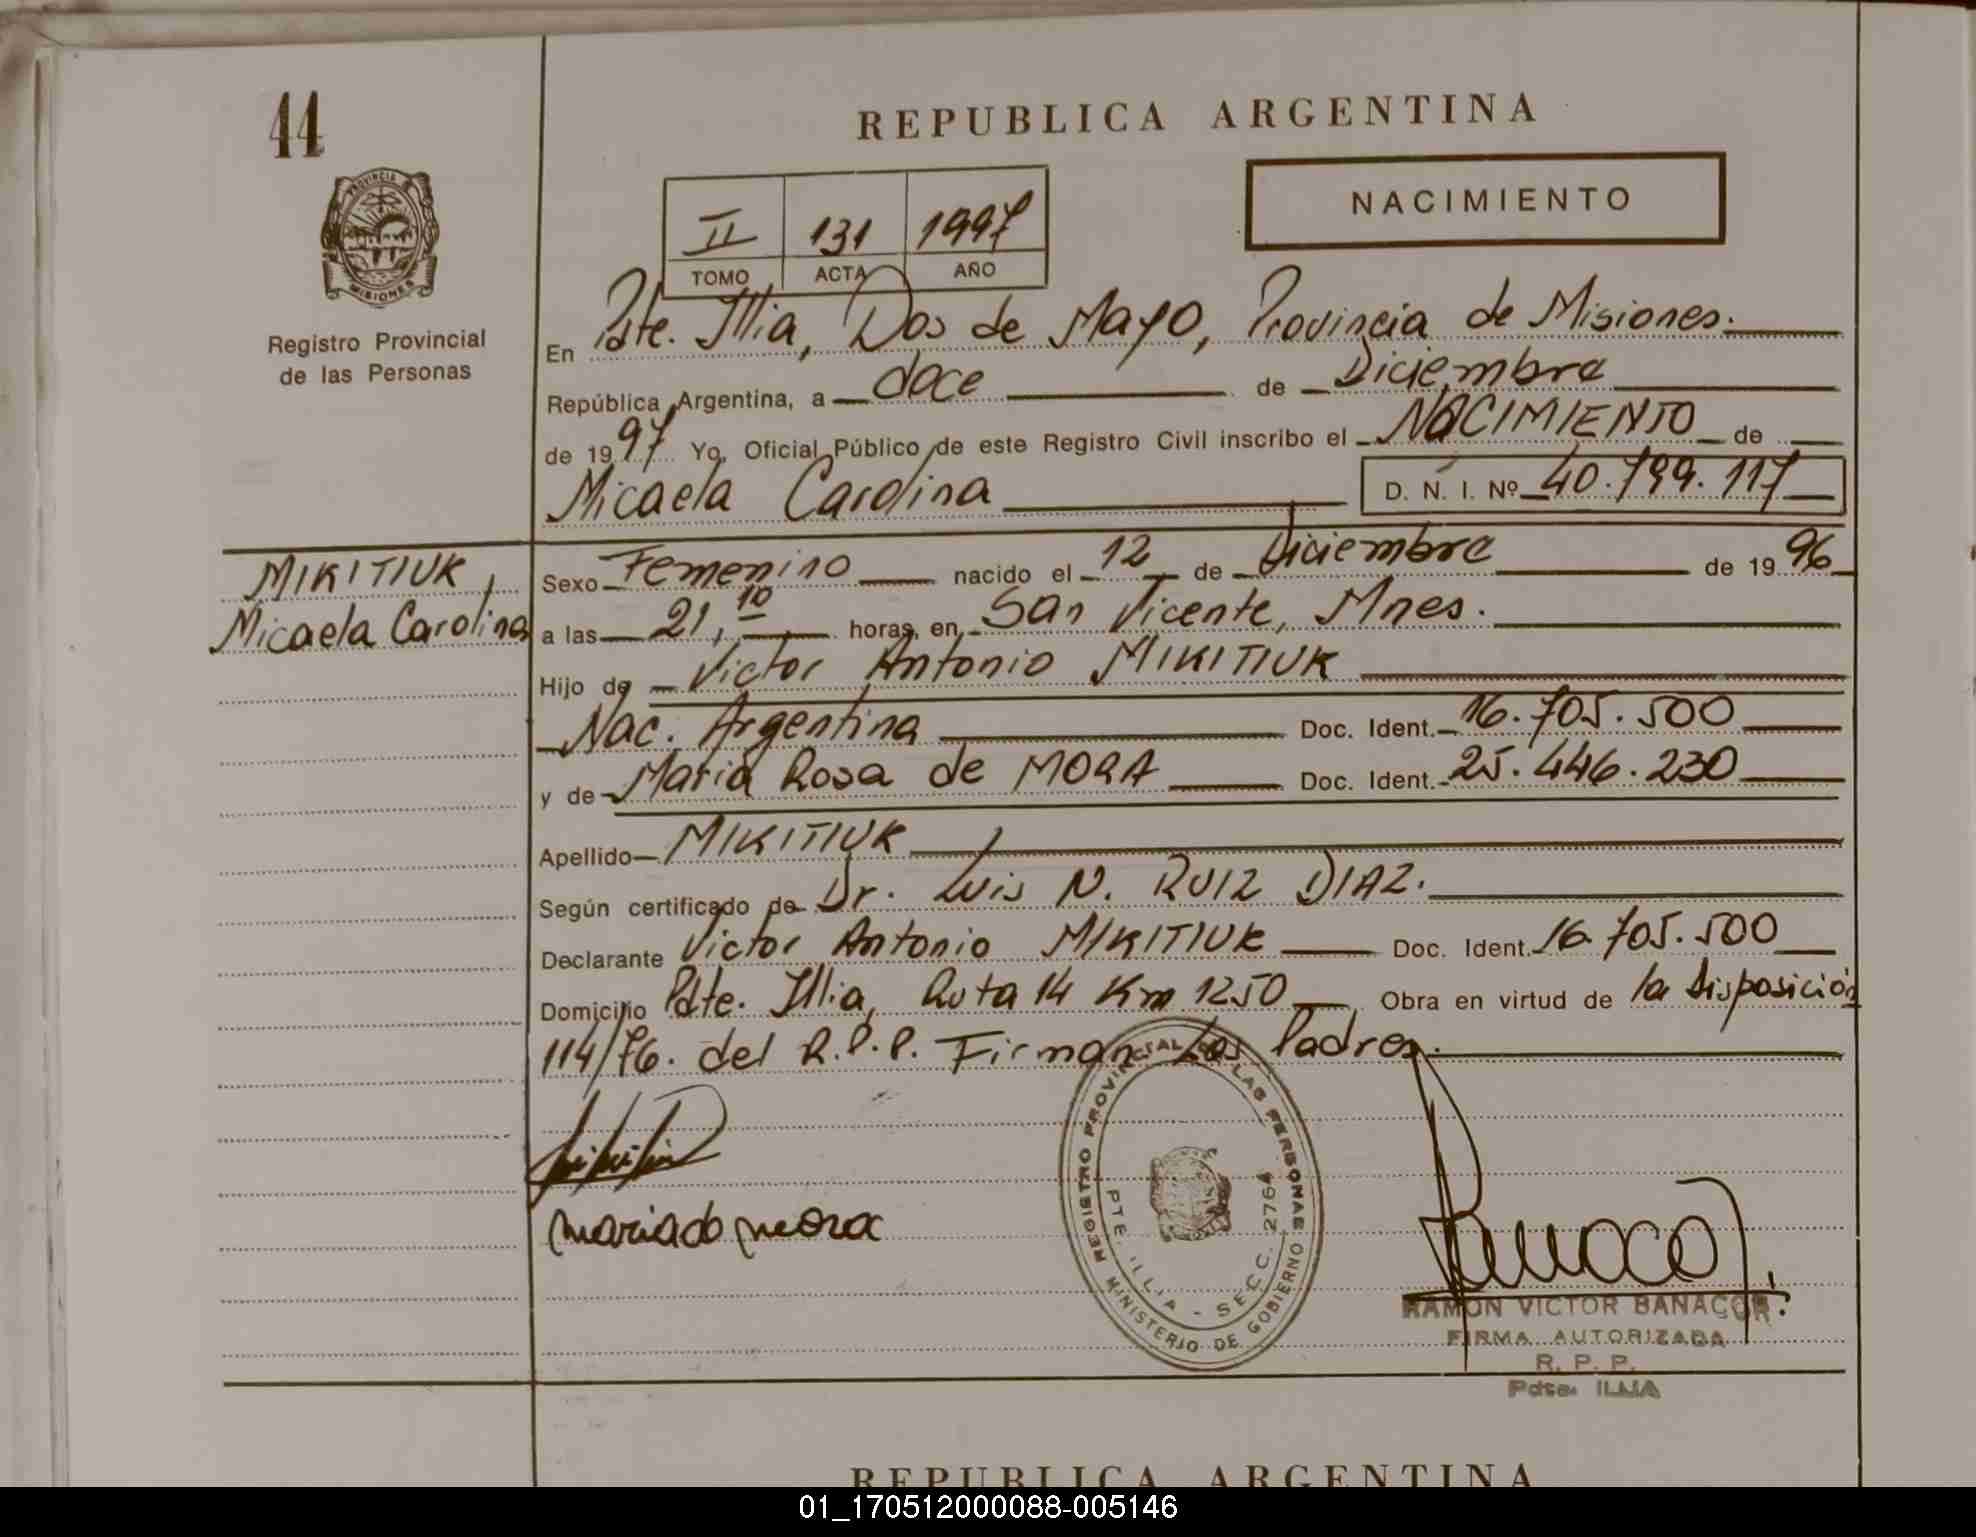 44
REPUBLICA ARGENTINA
NACIMIENTO
II 131 1997
TOMO ACTA AÑO
PROVINCIA
MISIONES
Registro Provincial
de las Personas
En Pdte. Illia, Dos de Mayo, Provincia de Misiones.
República Argentina, a doce de Diciembre
de 1997 Yo, Oficial Público de este Registro Civil inscribo el NACIMIENTO de
Micaela Carolina D. N. I. Nº 40.799.117
MIKITIUK,
Micaela Carolina
Sexo Femenino nacido el 12 de Diciembre de 1996
a las 21,10 horas, en San Vicente, Mnes.
Hijo de Victor Antonio MIKITIUK
Nac. Argentina Doc. Ident. 16.705.500
y de Maria Rosa de MORA Doc. Ident. 25.446.230
Apellido MIKITIUK
Según certificado de Dr. Luis N. RUIZ DIAZ.
Declarante Victor Antonio MIKITIUK Doc. Ident. 16.705.500
Domicilio Pdte. Illia, Ruta 14 Km 1250 Obra en virtud de la disposición
114/76. del R.P.P. Firman Los Padres.
mariado mora
REGISTRO PROVINCIAL DE LAS PERSONAS
MINISTERIO DE GOBIERNO
PTE. ILLIA - SECC. 2764
RAMON VICTOR BANACOR
FIRMA AUTORIZADA
R. P. P.
Pdte. ILLIA
REPUBLICA ARGENTINA
01_170512000088-005146